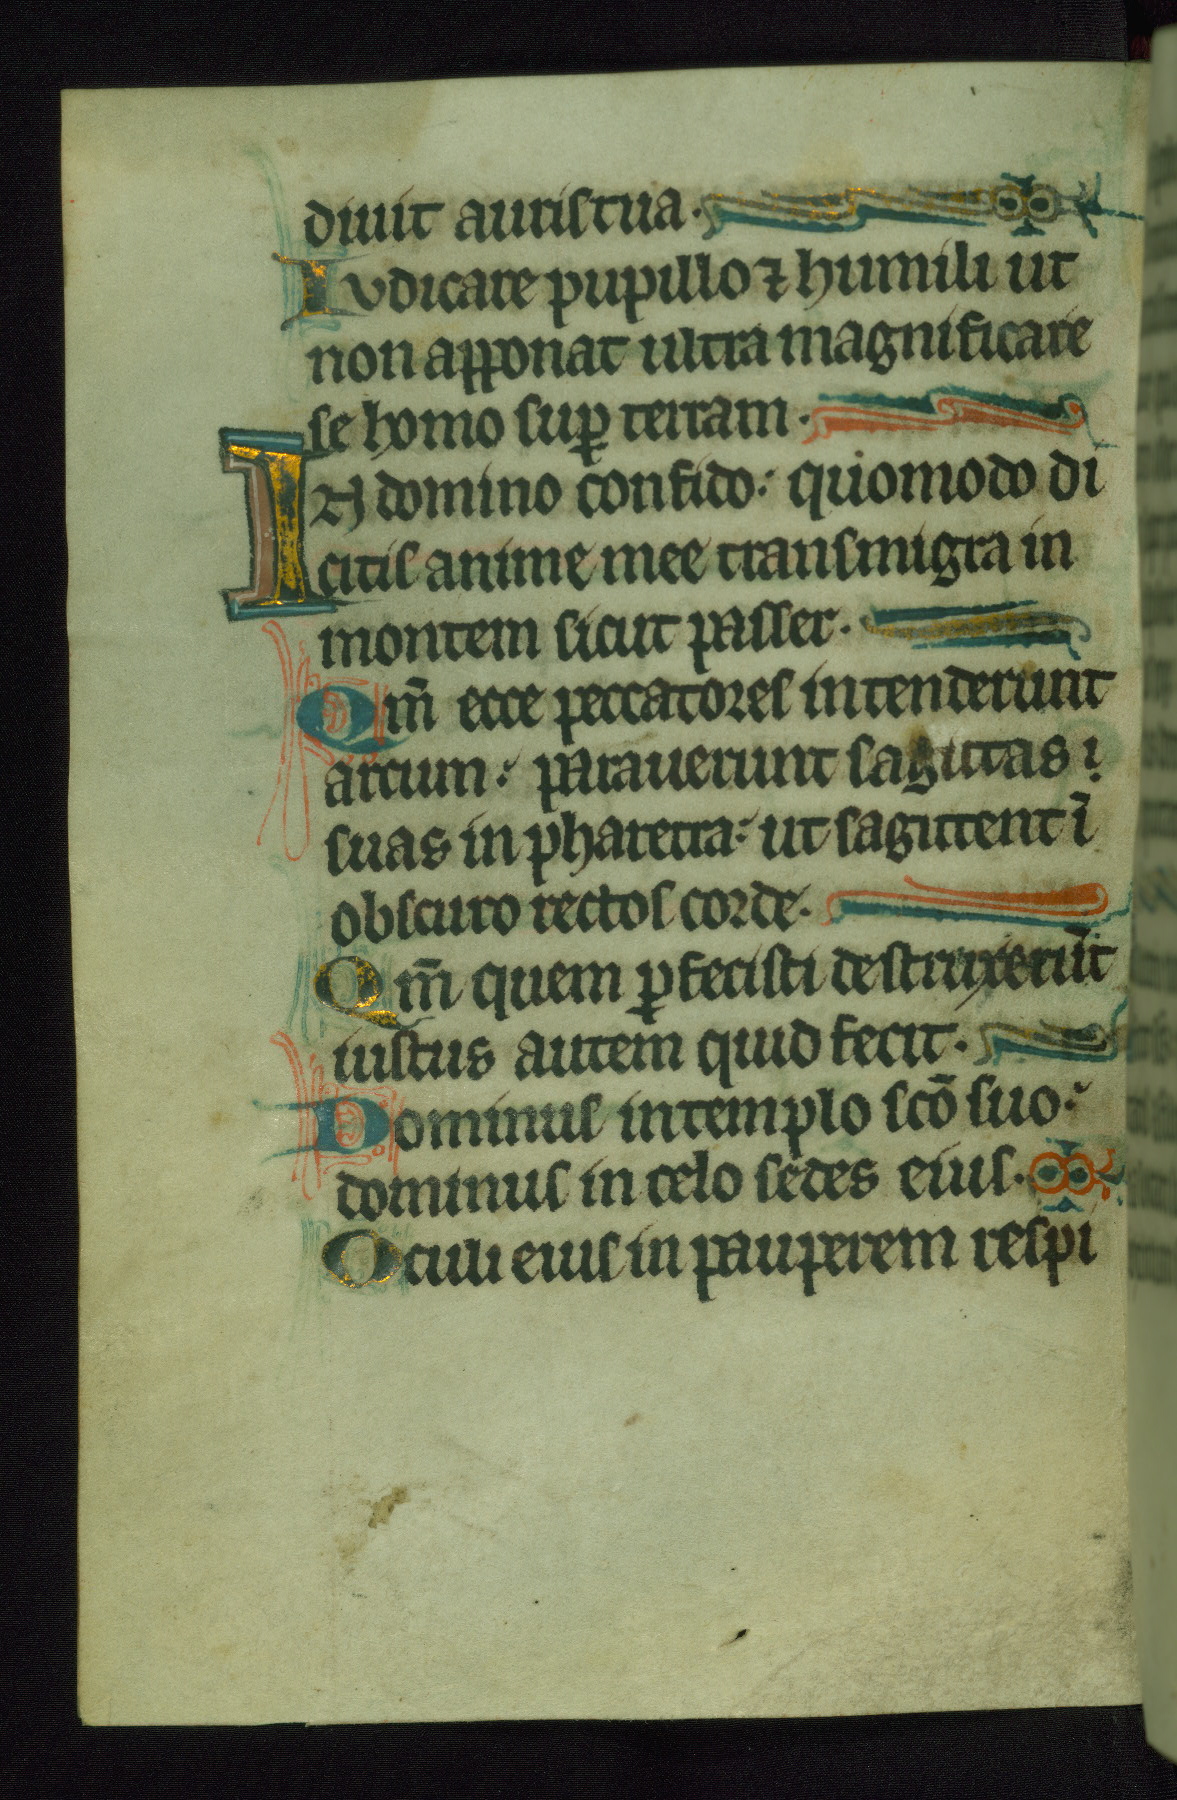 diuit auris tua.
Iudicare pupillo ⁊ humili ut
non apponat ultra magnificare
se homo sup̱ terram.
IN domino confido: quomodo di
citis anime mee transmigra in
montem sicut passer.
Qm̄ ecce peccatores intenderunt
arcum: parauerunt sagittas
suas in pharetra: ut sagittent ī
obscuro rectos corde.
Qm̄ quem ꝑfecisti destruxerūt
iustus autem quid fecit.
Dominus in templo scō suo:
dominus in celo sedes eius.
Oculi eius in pauperem respi